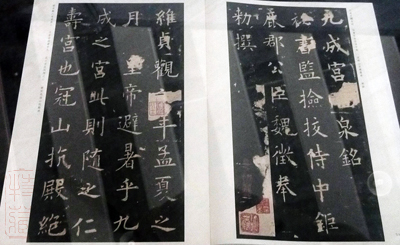 九成宮泉銘
祕書監撿挍侍中鉅
鹿郡公臣魏徵奉
勅撰
維貞觀年孟夏之
月皇帝避暑乎九
成之宮此則隨之仁
壽宮也冠山抗殿絕